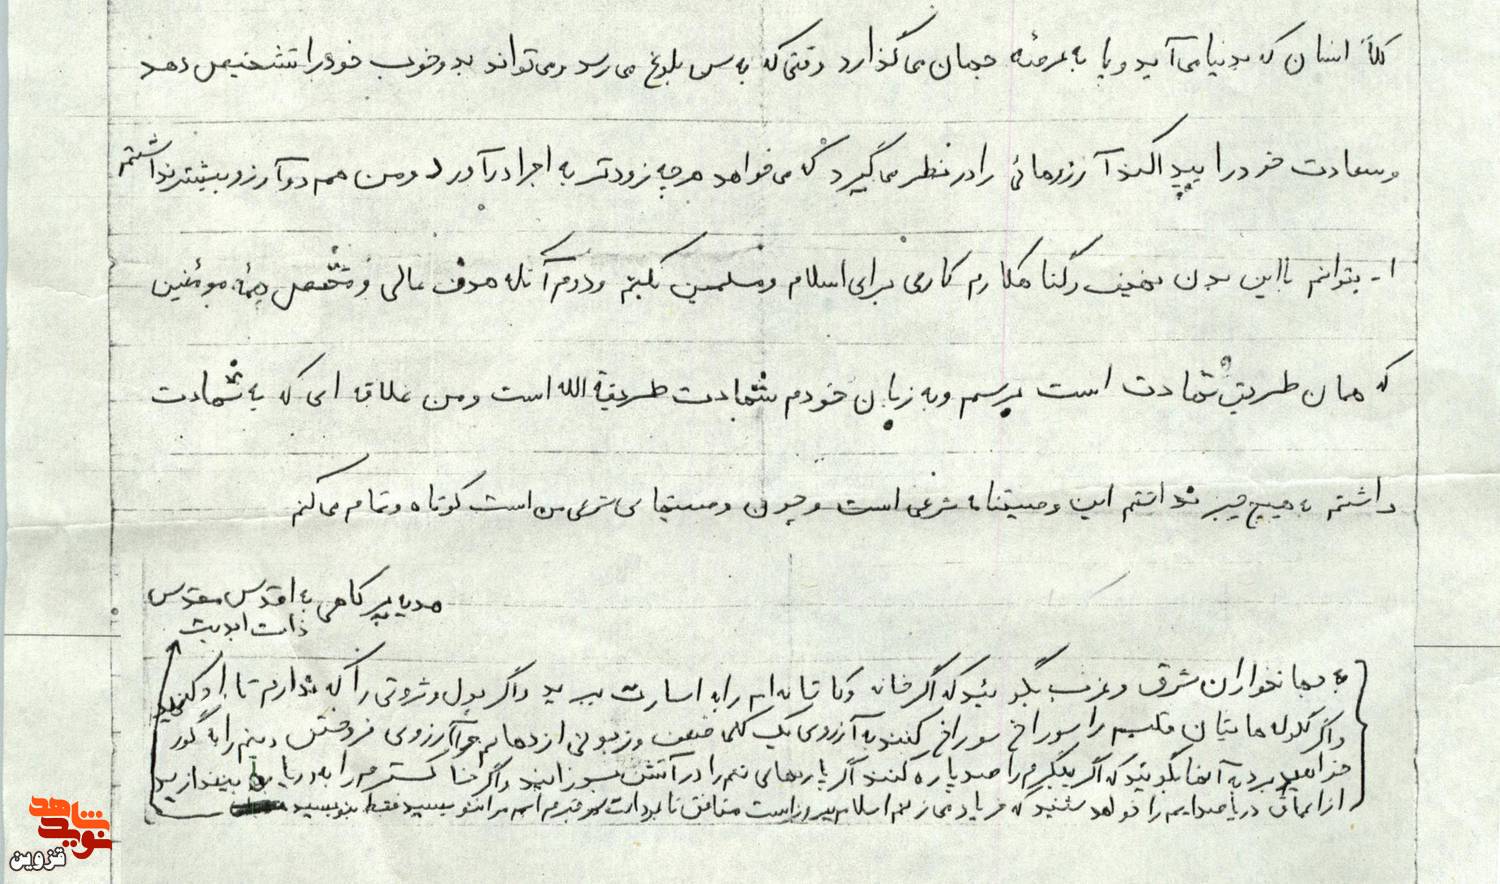 کلاً انسان که بدنیا می آید و پا به عرصه جهان می گذارد وقتی که به سن بلوغ می رسد و می تواند بد و خوب خود را تشخیص دهد
و سعادت خود را پیدا کند آرزوهائی را در نظر می گیرد که می خواهد هر چه زودتر به اجرا درآورد و من هم دو آرزو بیشتر نداشتم
۱- بتوانم با این بدن ضعیف و گناهکارم کاری برای اسلام و مسلمین بکنم و دوم آنکه هدف عالی و مشخص همه مومنین
که همان طریق شهادت است برسم و به زبان خودم شهادت طریقة الله است و من علاقه ای که به شهادت
داشتم به هیچ چیز نداشتم این وصیتنامه شرعی است و چون وصیتهای شرعی من است کوتاه و تمام می کنم
هدیه پر کاهی به اقدس مقدس
ذات ابدیت
به جهانخواران شرق و غرب بگوئید که اگر خانه و کاشانه ام را به اسارت ببرید و اگر پول و ثروتی را که ندارم تاراج کنید
و اگر گلوله هایتان قلبم را سوراخ سوراخ کنند به آرزوی یک کلمه ضعف و زبونی از دهانم و آرزوی فروختن دینم را به گور
خواهید برد به آنها بگوئید که اگر پیکرم را صد پاره کنند اگر پاره های تنم را در آتش بسوزانید و اگر خاکسترم را به دریا بیندازید
از اعماق دریا صدایم را خواهد شنید که فریاد می زنم اسلام پیروز است منافق نابود است سر قبرم اسم مرا ننویسید فقط بنویسید
شاهد
نوید
قزوین